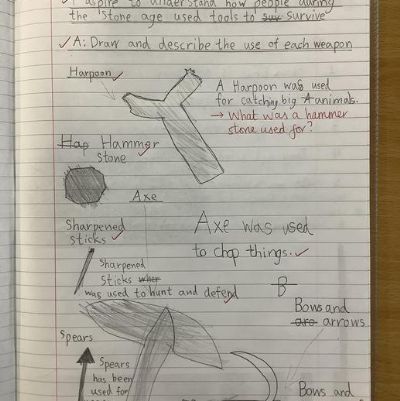 I aspire to understand how people during
the 'Stone age used tools to sur survive'
A: Draw and describe the use of each weapon
Harpoon
A Harpoon was used
for catching big animals.
→ What was a hammer
stone used for?
Hap Hammer
stone
Axe
Sharpened
sticks
Axe was used
to chop things.
Sharpened
sticks wher
was used to hunt and defend
B
Bows and
are arrows
Spears
Spears
has been
used for
Bows and